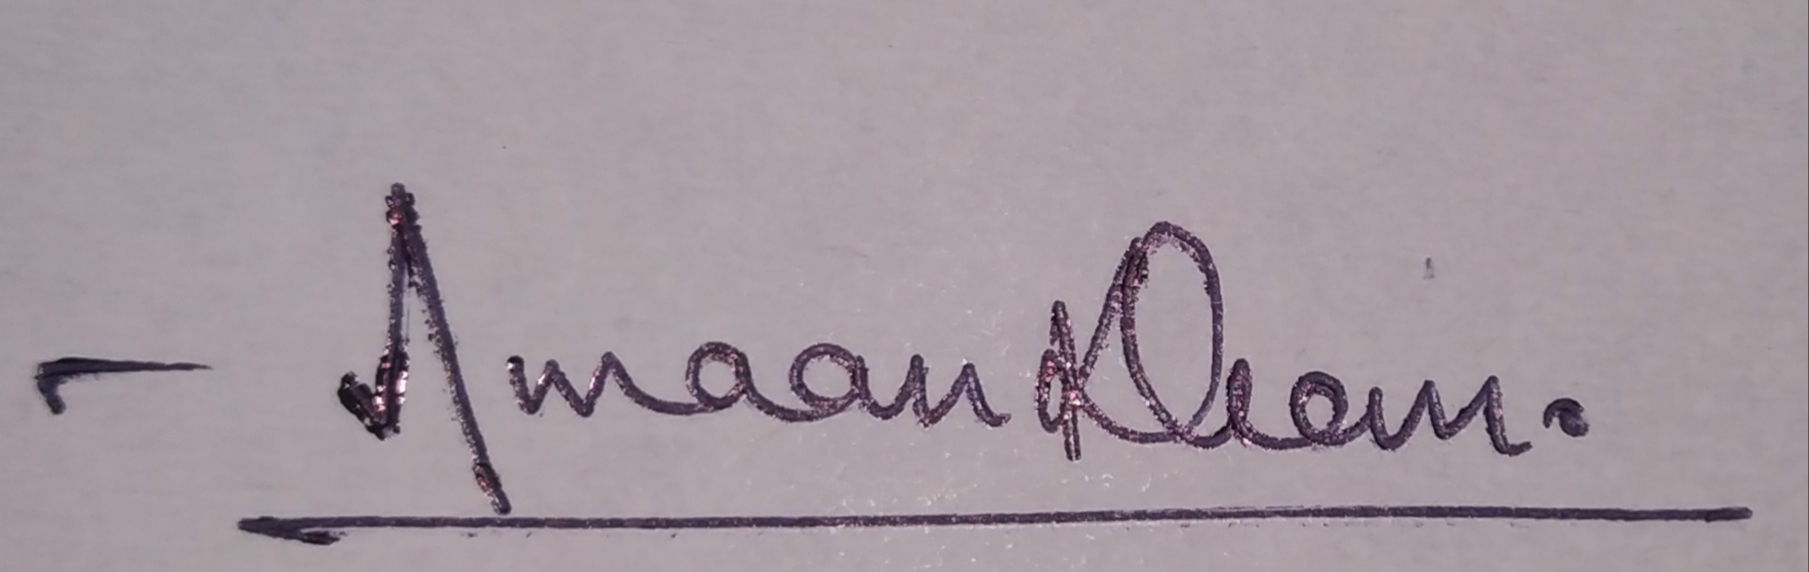 - Amaan Khan.